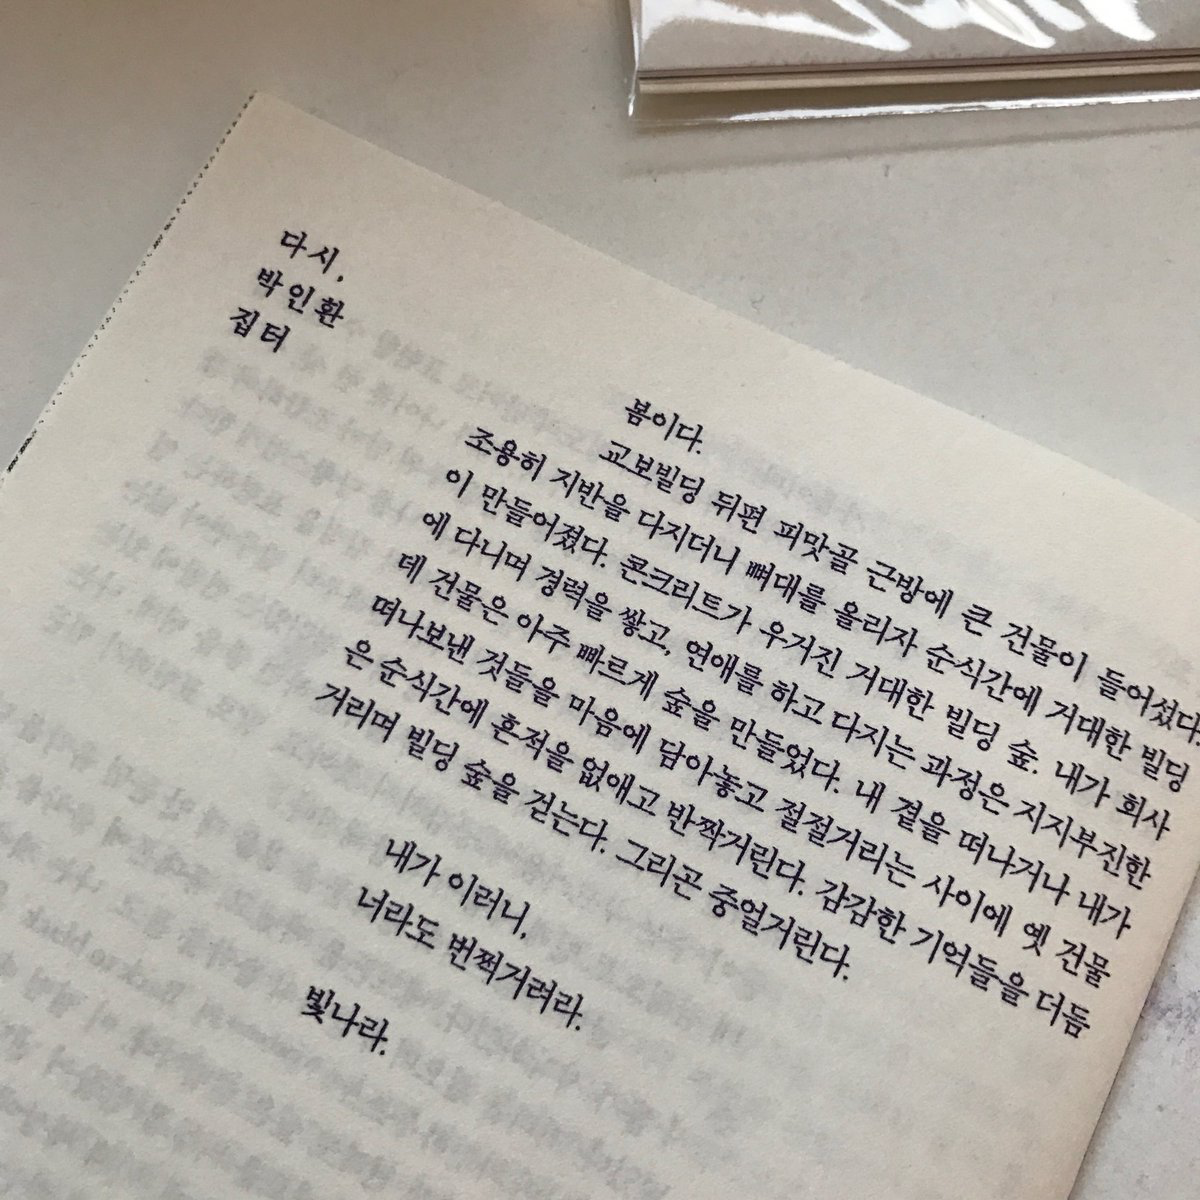 다시,
박인환
집터
봄이다.
교보빌딩 뒤편 피맛골 근방에 큰 건물이 들어섰다.
조용히 지반을 다지더니 뼈대를 올리자 순식간에 거대한 빌딩
이 만들어졌다. 콘크리트가 우거진 거대한 빌딩 숲. 내가 회사
에 다니며 경력을 쌓고, 연애를 하고 다지는 과정은 지지부진한
데 건물은 아주 빠르게 숲을 만들었다. 내 곁을 떠나거나 내가
떠나보낸 것들을 마음에 담아놓고 절절거리는 사이에 옛 건물
은 순식간에 흔적을 없애고 반짝거린다. 감감한 기억들을 더듬
거리며 빌딩 숲을 걷는다. 그리곤 중얼거린다.
내가 이러니,
너라도 번쩍거려라.
빛나라.